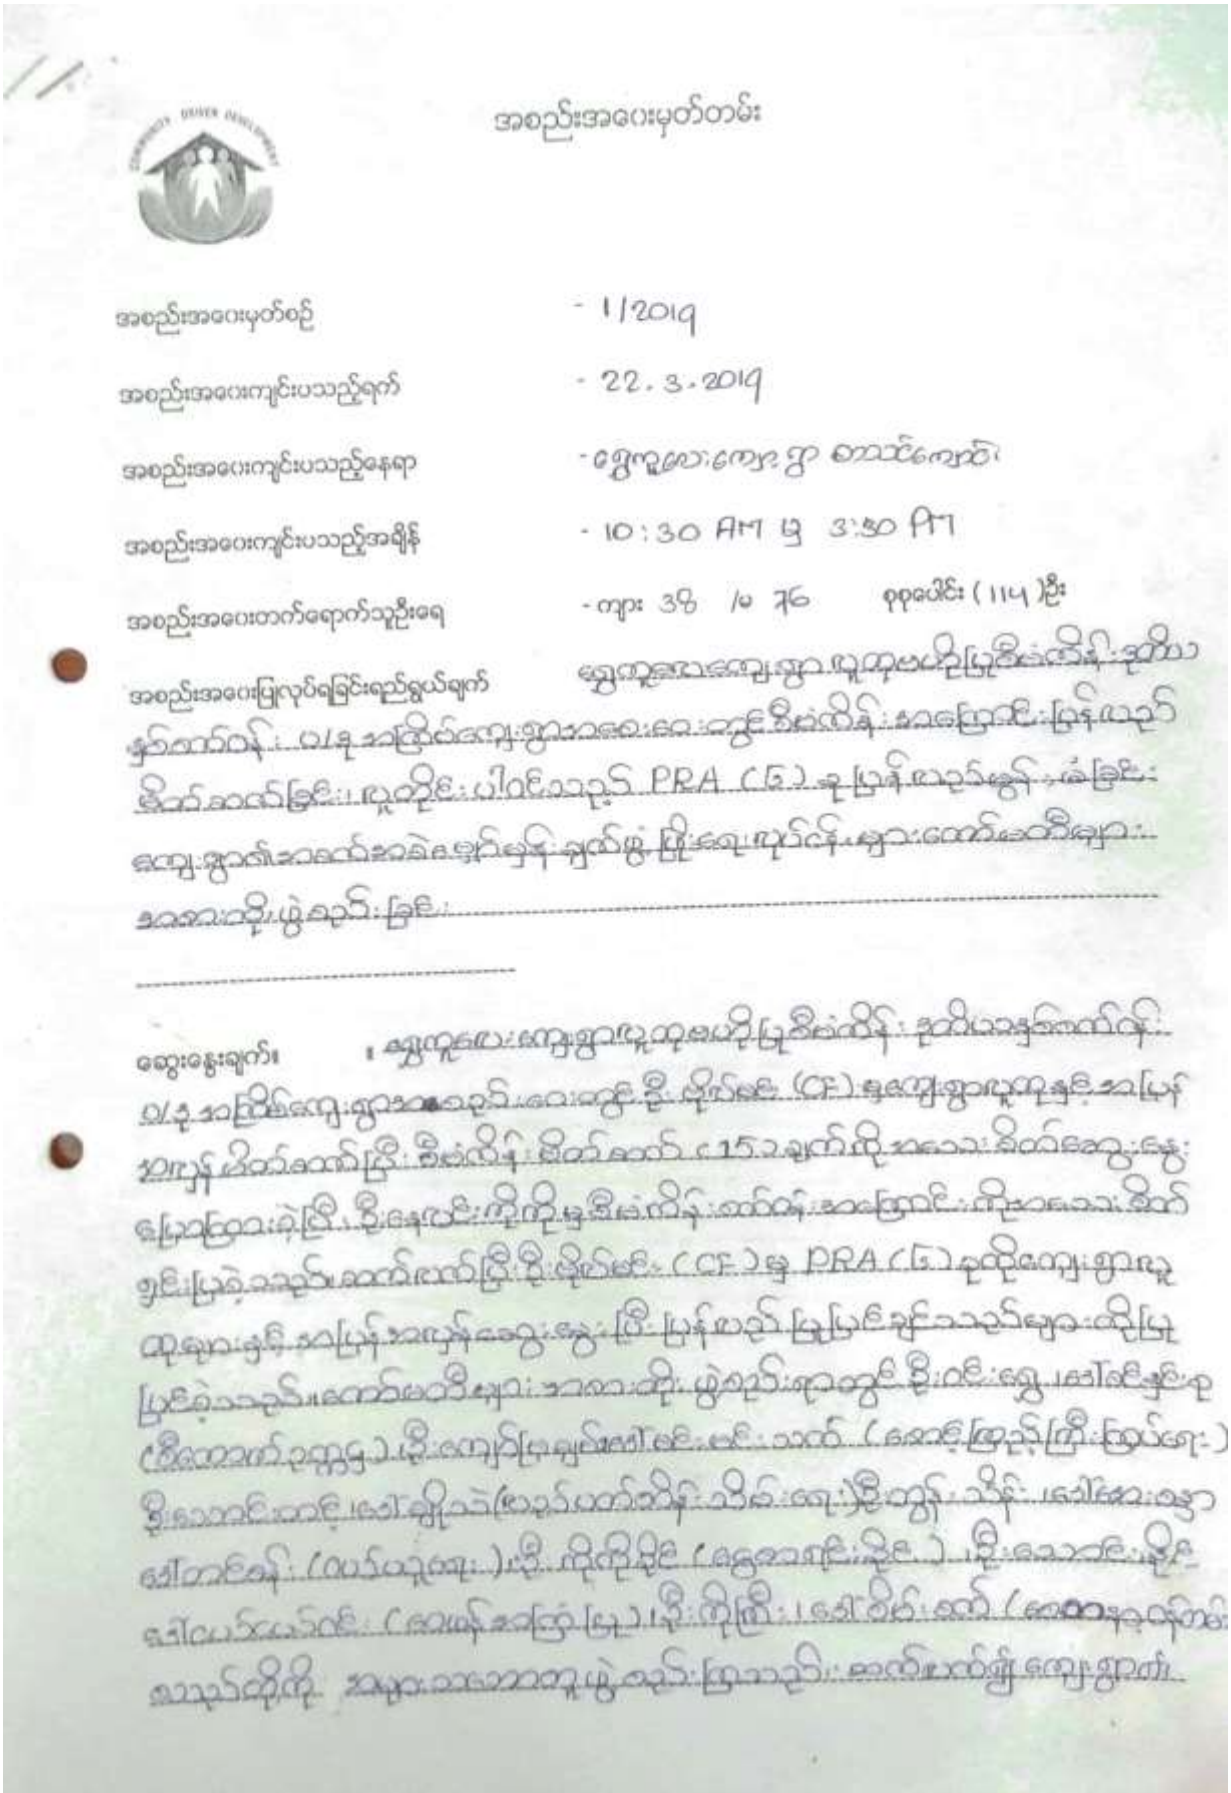 COMMUNITY DRIVEN DEVELOPMENT
အစည်းအဝေးမှတ်တမ်း
အစည်းအဝေးမှတ်စဉ် - 1/2019
အစည်းအဝေးကျင်းပသည့်ရက် - 22.3.2019
အစည်းအဝေးကျင်းပသည့်နေရာ - ရွှေကူလေးကျေးရွာ စာသင်ကျောင်း
အစည်းအဝေးကျင်းပသည့်အချိန် - 10:30 AM မှ 3:30 PM
အစည်းအဝေးတက်ရောက်သူဦးရေ - ကျား 38 /မ 76 စုစုပေါင်း (114)ဦး
အစည်းအဝေးပြုလုပ်ရခြင်းရည်ရွယ်ချက် ရွှေကူလေးကျေးရွာ လူထုဗဟိုပြုစီမံကိန်း ဒုတိယ
နှစ်စက်ဝန်း ပ/ဒု အကြိမ်ကျေးရွာအစည်းအဝေးတွင် စီမံကိန်းအကြောင်း ပြန်လည်
မိတ်ဆက်ခြင်း၊ လူတိုင်းပါဝင်သည့် PRA (5) ခု ပြန်လည်
ကျေးရွာ၏အခက်အခဲ ဖွံ့ဖြိုးရေးလုပ်ငန်းများ ကော်မတီများ
အစားထိုးဖွဲ့စည်းခြင်း
ဆွေးနွေးချက်။ ။ ရွှေကူလေးကျေးရွာလူထုဗဟိုပြုစီမံကိန်း ဒုတိယနှစ်စက်ဝန်း
ပ/ဒု အကြိမ်ကျေးရွာအစည်းအဝေးတွင် ဦး (CF) မှကျေးရွာလူထုနှင့် အပြန်
အလှန် မိတ်ဆက်ပြီး စီမံကိန်းမိတ်ဆက် (15) ချက်ကို အသေးစိတ်ဆွေးနွေး
ပြောကြားခဲ့ပြီး ဦးနေလင်းကိုကိုမှ စီမံကိန်းစက်ဝန်းအကြောင်းကိုအသေးစိတ်
ရှင်းပြခဲ့သည်။ ဆက်လက်ပြီး ဦး (CF) မှ PRA (5) ခုကိုကျေးရွာလူ
ထုများနှင့် အပြန်အလှန်ဆွေးနွေးပြီး ပြန်လည် ပြုပြင်ချင်သည်များကိုပြု
ပြင်ခဲ့သည်။ ကော်မတီများ အစားထိုး ဖွဲ့စည်းရာတွင် ဦးဝင်းရွှေ
(စီ/ထောက်ဥက္ကဋ္ဌ) ဒေါ်မင်းမင်းသက် (စောင့်ကြည့်ကြီးကြပ်ရေး)
ဦးသောင်းတင့်၊ ဒေါ်ချိုသဲ (လည်ပတ်ထိန်းသိမ်းရေး) ဦးထွန်းသိန်း
(ဝယ်ယူရေး)၊ ဦးကိုကိုနိုင် (ငွေစာရင်းပိုင်း)
(ဝေဖန်အကြံပြု)၊ ဦးကိုကြီး
သည်တို့ကို အများသဘောတူ ဖွဲ့စည်းကြသည်။ ဆက်လက်၍ ကျေးရွာ၏